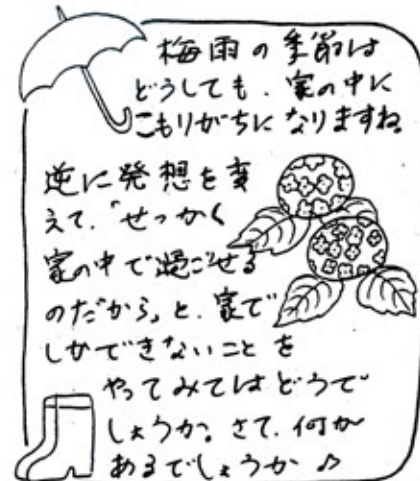 梅雨の季節は
どうしても、家の中に
こもりがちになりますね
逆に発想を変
えて、「せっかく
家の中で過ごせる
のだから」と、家で
しかできないことを
やってみてはどうで
しょうか。さて、何が
あるでしょうか♪